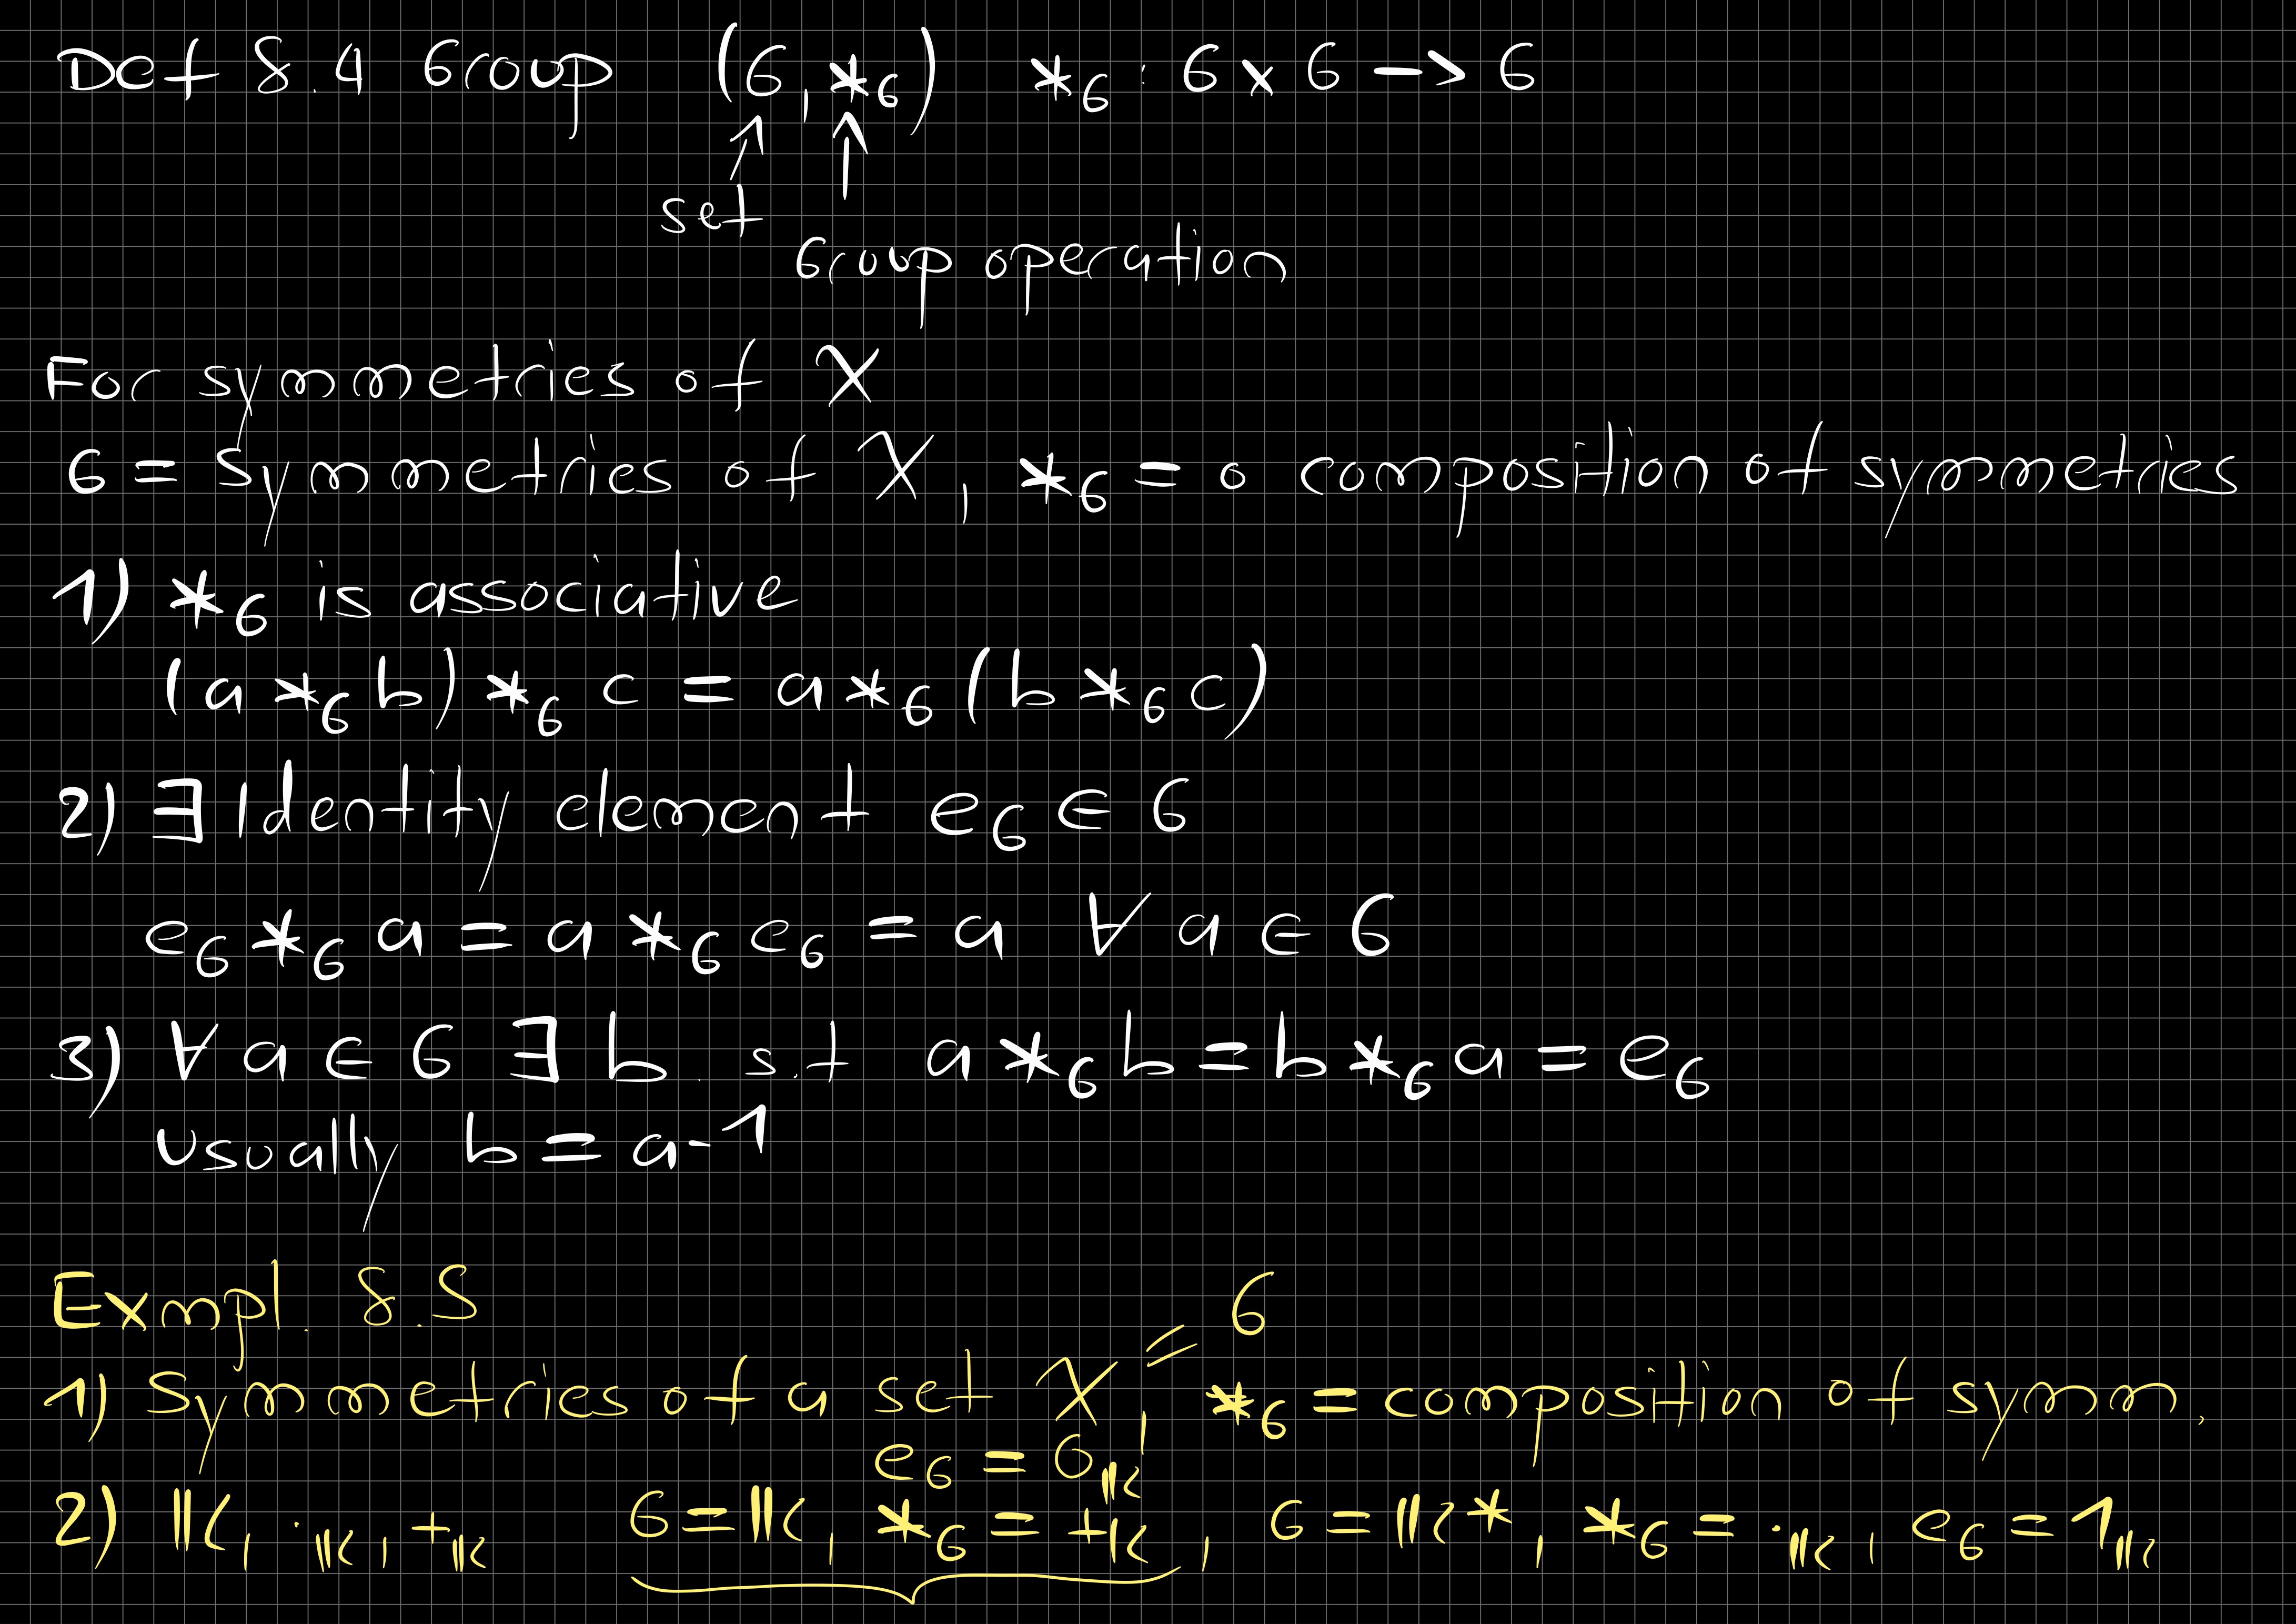 Def 8.4 Group (G, *_G) *_G : G × G → G
set
Group operation
For symmetries of X
G = Symmetries of X, *_G = ∘ composition of symmetries
1) *_G is associative
(a *_G b) *_G c = a *_G (b *_G c)
2) ∃ Identity element e_G ∈ G
e_G *_G a = a *_G e_G = a ∀ a ∈ G
3) ∀ a ∈ G ∃ b s.t a *_G b = b *_G a = e_G
usually b = a^-1
Exmpl. 8.5
1) Symmetries of a set X = G, *_G = composition of symm.
e_G = 0_𝕂
2) 𝕂, ·_𝕂, +_𝕂 G = 𝕂, *_G = +_𝕂, G = 𝕂*, *_G = ·_𝕂, e_G = 1_𝕂